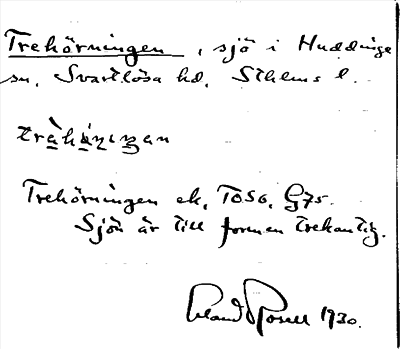 Trehörningen, sjö i Huddinge
sn, Svartlösa hd, Sthlms l.
Trehörningen ek. T056. G75.
Sjön är till formen trekantig.
Erland Rosell 1930.